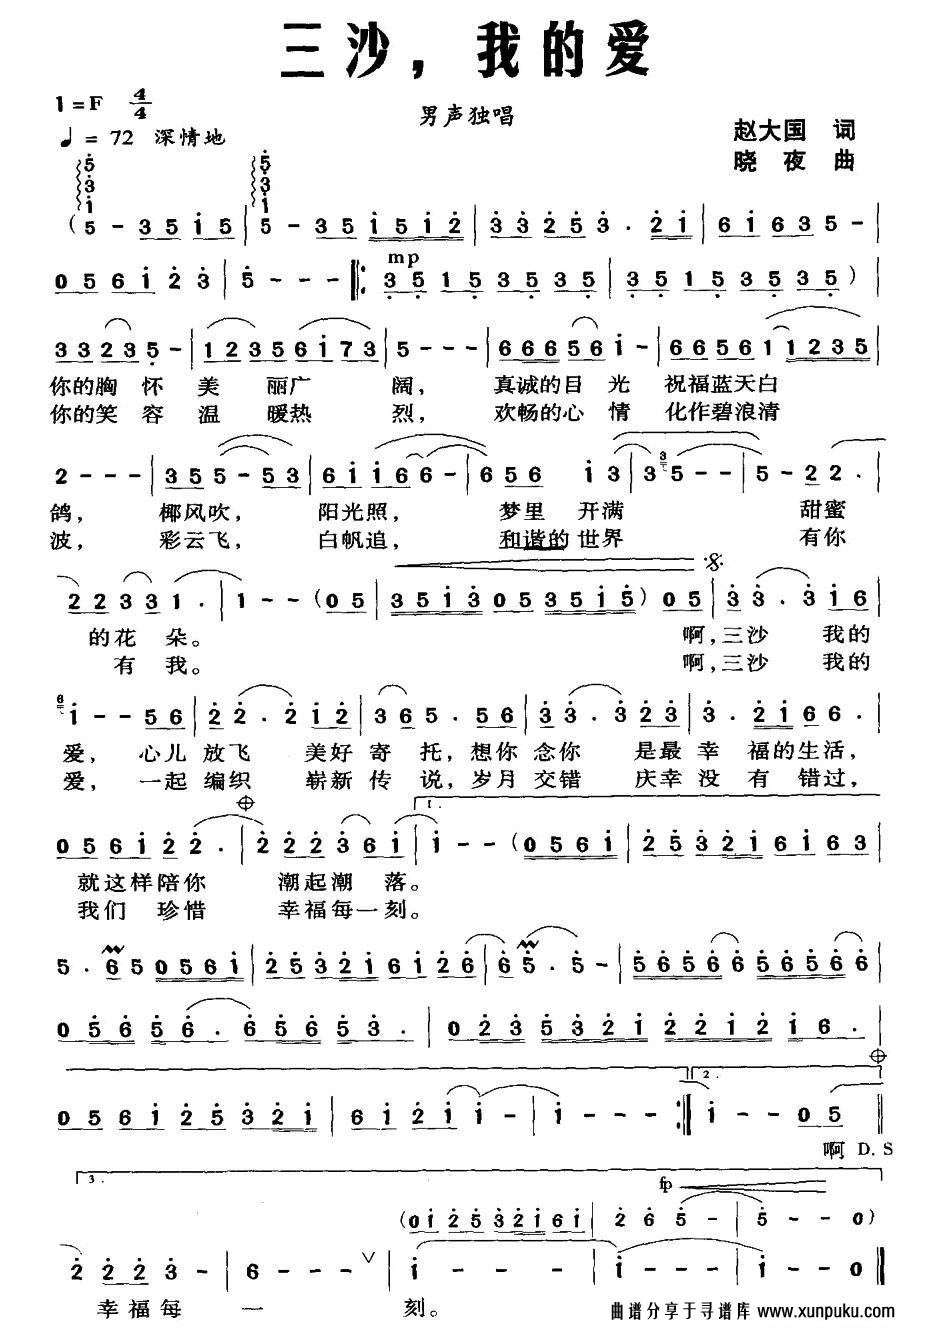 三沙，我的爱
1=F 4/4
男声独唱
♩= 72 深情地
赵大国 词
晓夜 曲
(5 - 3 5 i 5 | 5 - 3 5 i 5 i 2 | 3 3 2 5 3 . 2 i | 6 i 6 3 5 - |
mp
0 5 6 i 2 3 | 5 - - - |: 3 5 1 5 3 5 3 5 | 3 5 1 5 3 5 3 5 ) |
3 3 2 3 5 - | 1 2 3 5 6 i 7 3 | 5 - - - | 6 6 6 5 6 i - | 6 6 5 6 1 1 2 3 5 |
你的胸 怀 美 丽广 阔， 真诚的目 光 祝福蓝天白
你的笑 容 温 暖热 烈， 欢畅的心 情 化作碧浪清
2 - - - | 3 5 5 - 5 3 | 6 i i 6 6 - | 6 5 6 i 3 | 3 5 - - | 5 - 2 2 . |
鸽， 椰风吹， 阳光照， 梦里 开满 甜蜜
波， 彩云飞， 白帆追， 和谐的 世界 有你
2 2 3 3 1 . | 1 - - (0 5 | 3 5 i 3 0 5 3 5 i 5 ) 0 5 | 3 3 . 3 i 6 |
的花 朵。 啊，三沙 我的
有 我。 啊，三沙 我的
i - - 5 6 | 2 2 . 2 i 2 | 3 6 5 . 5 6 | 3 3 . 3 2 3 | 3 . 2 i 6 6 . |
爱， 心儿 放飞 美好 寄 托，想你 念你 是最 幸 福的生活，
爱， 一起 编织 崭新 传 说，岁月 交错 庆幸 没 有 错过，
1.
0 5 6 i 2 2 . | 2 2 2 3 6 i | i - - (0 5 6 i | 2 5 3 2 i 6 i 6 3 |
就这样陪你 潮起潮 落。
我们 珍惜 幸福每一刻。
5 . 6 5 0 5 6 i | 2 5 3 2 i 6 i 2 6 | 6 5 . 5 - | 5 6 5 6 6 5 6 5 6 6 |
0 5 6 5 6 . 6 5 6 5 3 . | 0 2 3 5 3 2 i 2 2 i 2 i 6 . |
2.
0 5 6 i 2 5 3 2 i | 6 i 2 i i - | i - - - :| i - - 0 5 ||
啊 D.S
3.
fp
(0 i 2 5 3 2 i 6 i | 2 6 5 - | 5 - - 0 )
2 2 2 3 - | 6 - - - | i - - - | i - - - | i - - - ||
幸福每 一 刻。
曲谱分享于寻谱库 www.xunpuku.com